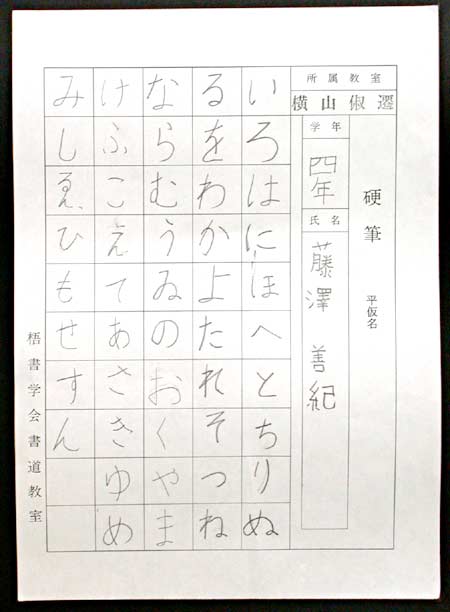 硬筆 平仮名
所属教室
横山
学年
四年
氏名
藤澤 善紀
いろはにほへとちりぬ
るをわかよたれそつね
ならむうゐのおくやま
けふこえてあさきゆめ
みしゑひもせすん
梧書学会書道教室